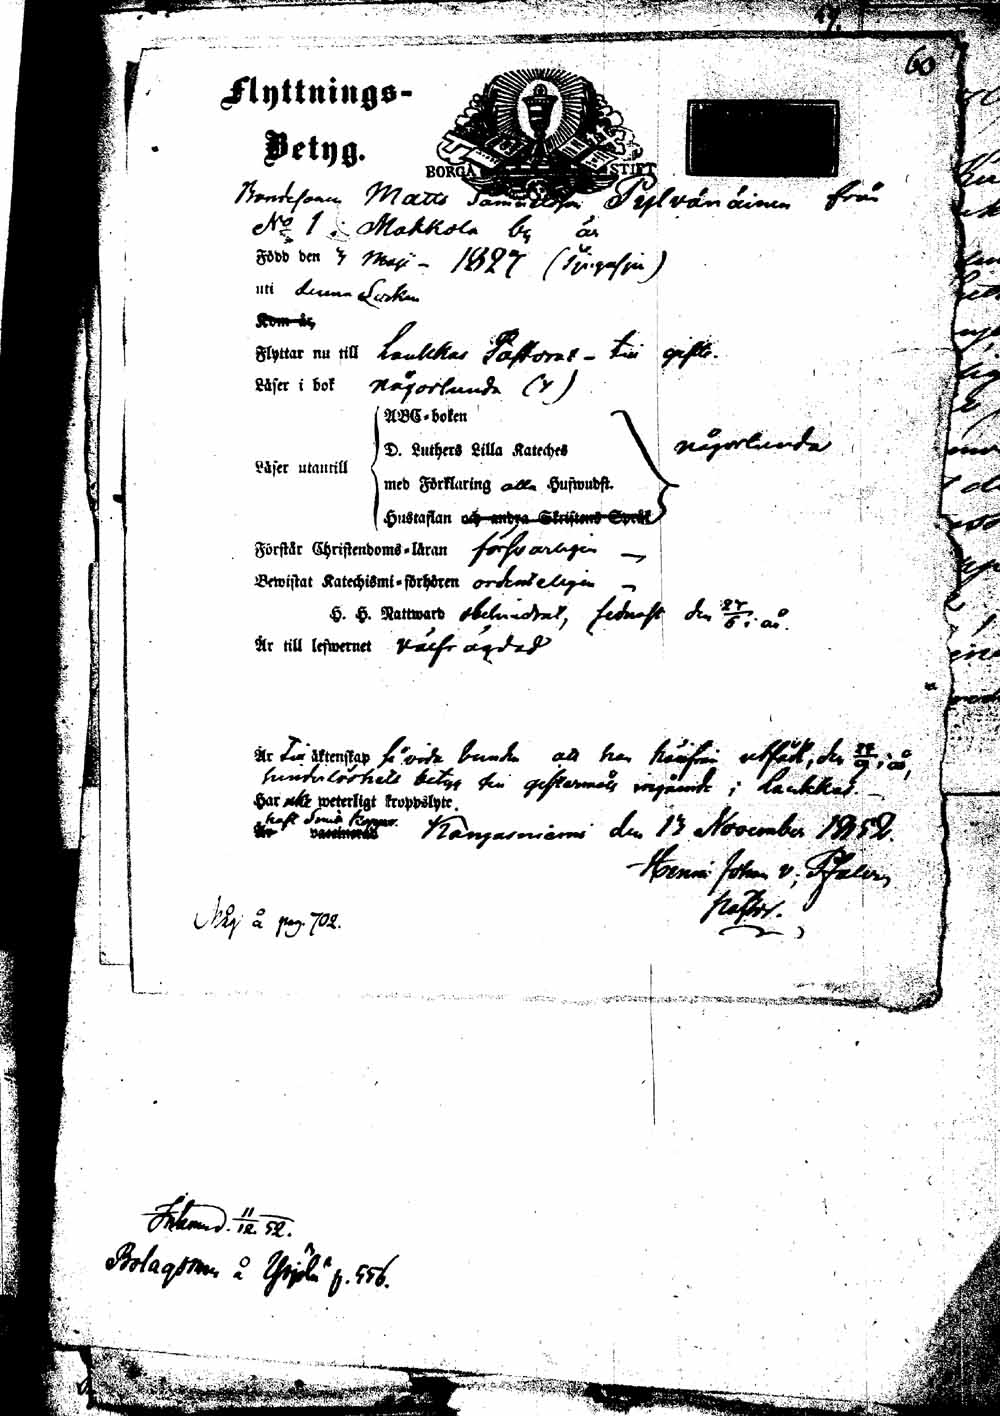 60
Flyttnings-
Betyg.
BORGÅ STIFT
Bondesonen Matts Samuelsson Pylvänäinen från
No 1 i Makkola by är
Född den 7 Maji - 1827 (Tjugusju)
uti denna Socken
Kom år,
Flyttar nu till Laukkas Pastorat - till gifte.
Läser i bok någorlunda (7)
ABC-boken
D. Luthers Lilla Kateches
någorlunda
Läser utantill
med Förklaring alla Huswudst.
Hustaflan och andra Skriftens Språk
Förstår Christendoms-läran försvarligen
Bewistat Katechismi-förhören ordenteligen
H. H. Nattward obehindrat, sednast den 27/6 i år.
Är till lefwernet välfrägdad
Är till äktenskap så vida bunden att han härifrån utfådt, den 27/9 i år,
hinderlöshets betyg till giftermåls ingående i Laukkas.
Har icke weterligt kroppslyte.
haft Sina Koppor.
Är vaccinerad
Kangasniemi den 13 November 1852.
Henric Johan v. Pfaler
Pastor.
å pag. 702.
Inkom d. 11/12 52.
Bolagsman å p. 556.